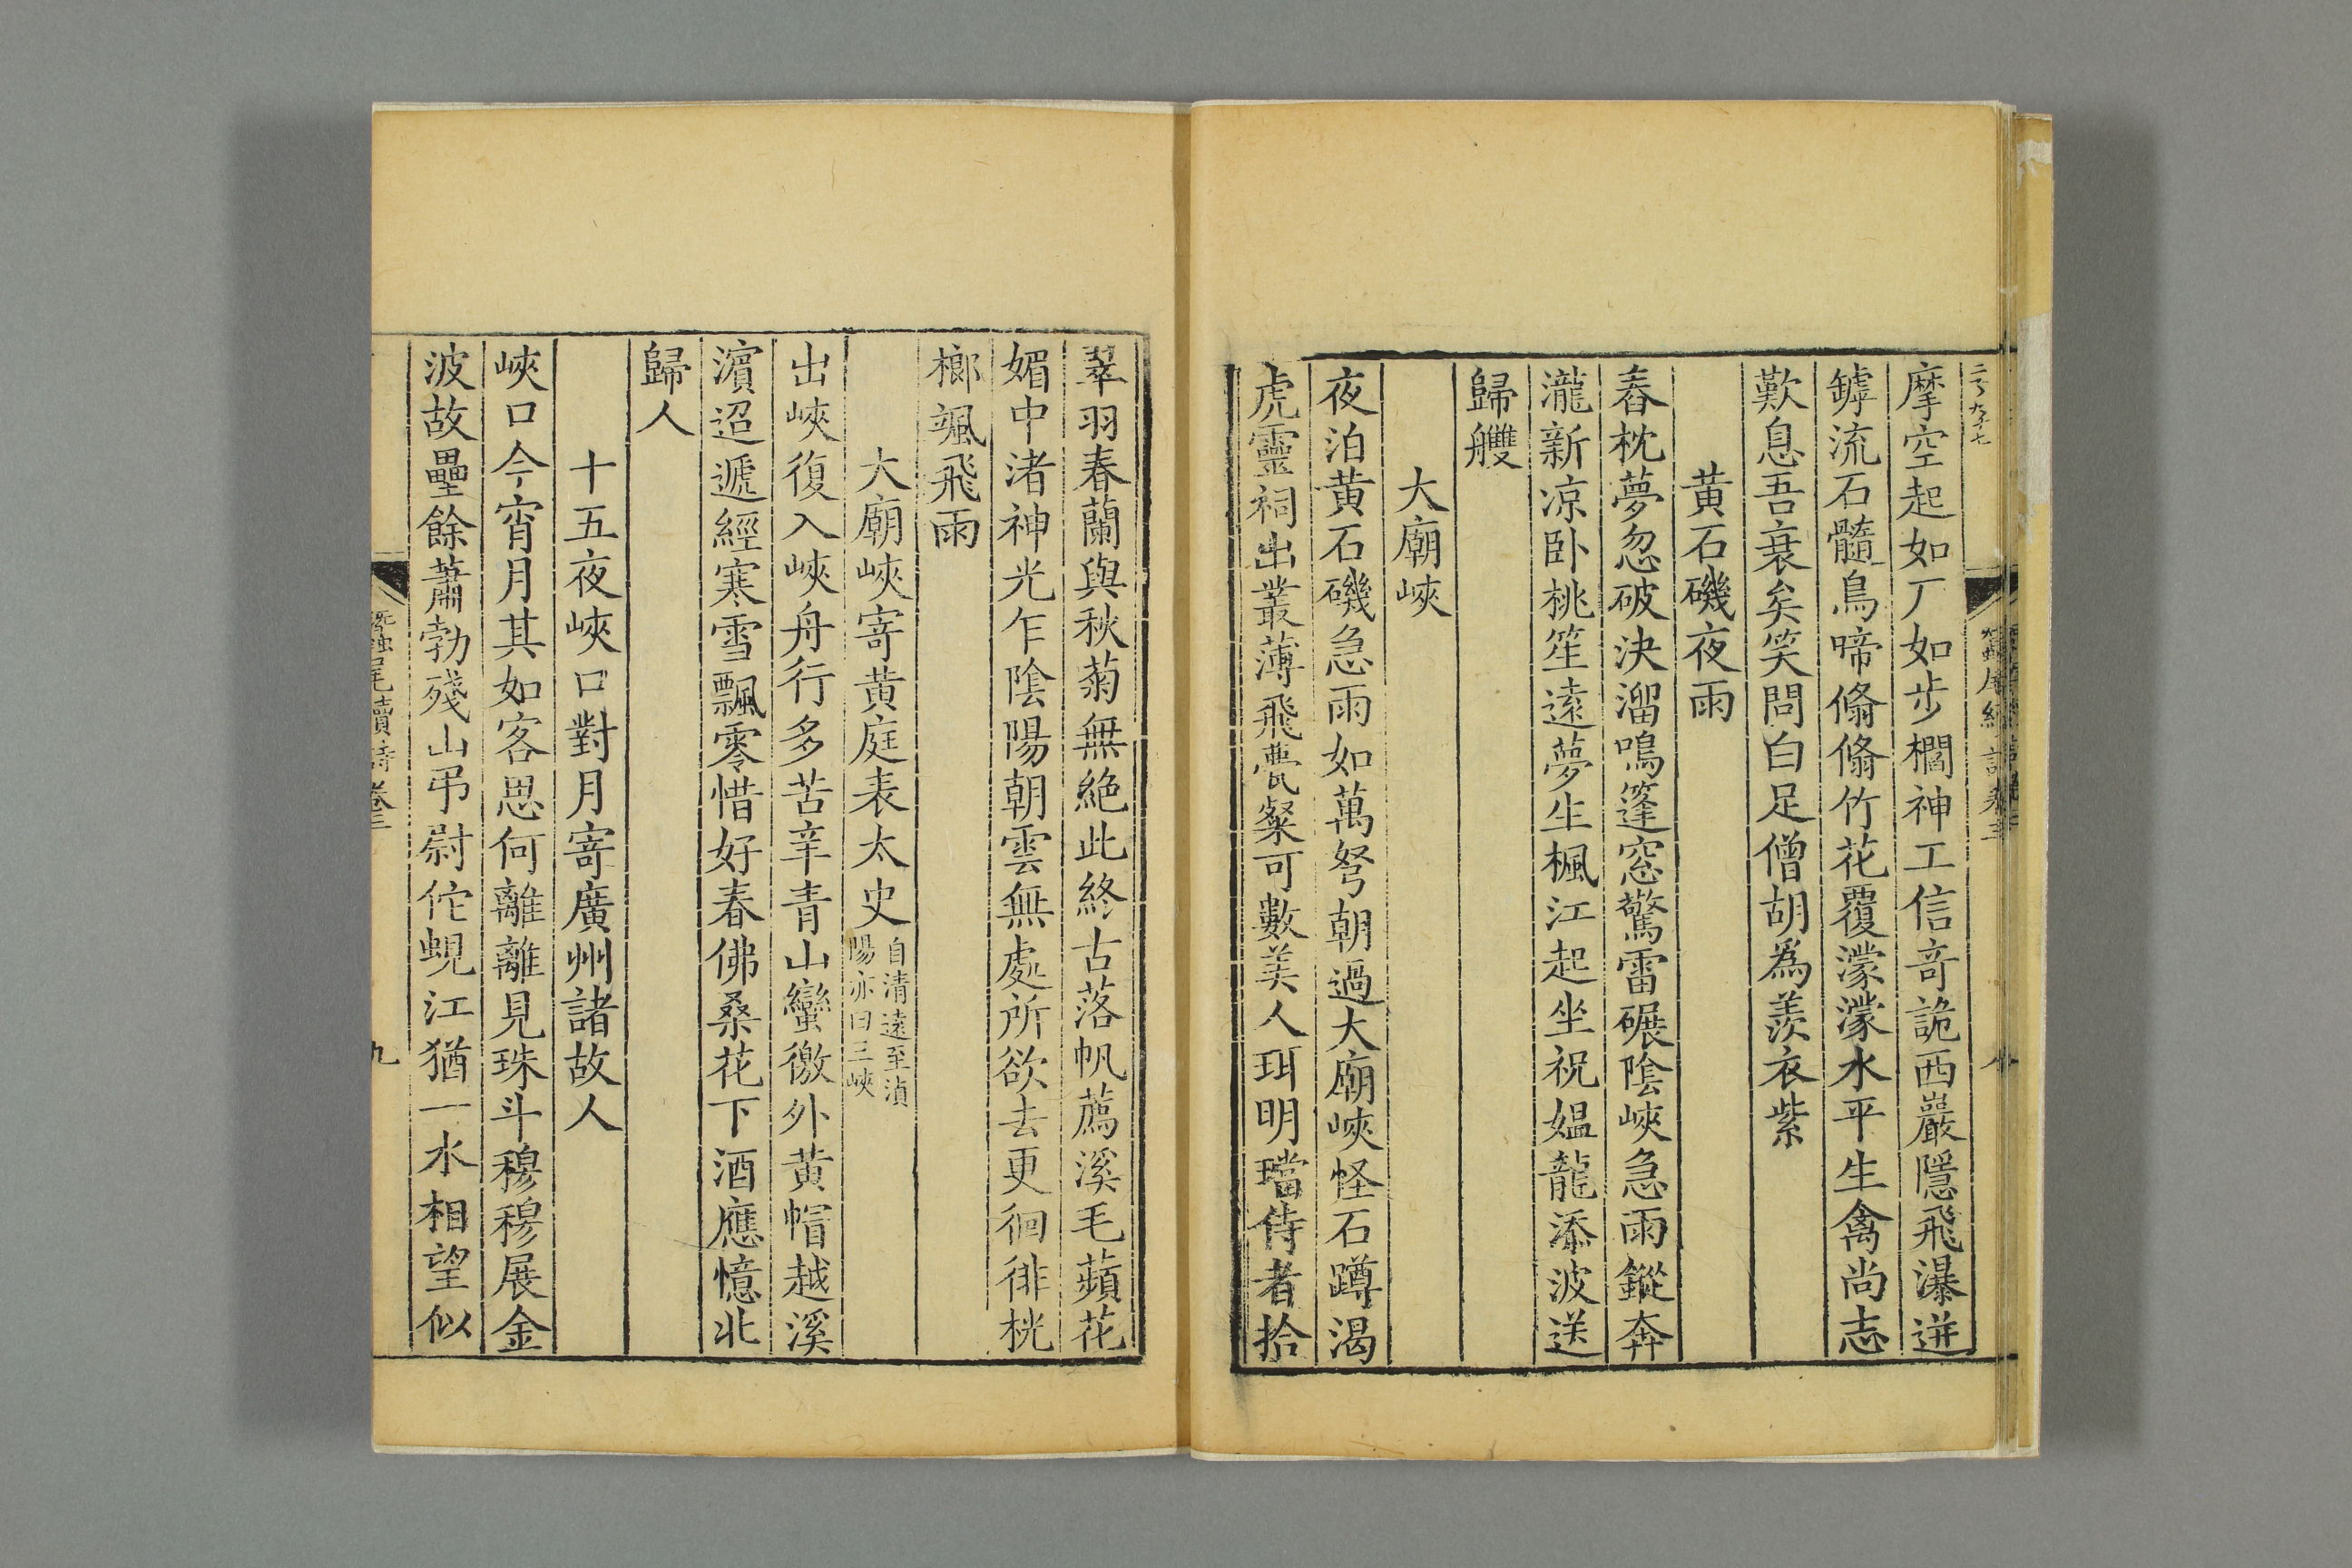 摩空起如丆如步櫩神工信奇詭西巖隱飛瀑迸
罅流石髓鳥啼翛翛竹花覆濛濛水平生禽尚志
歎息吾衰矣笑問白足僧胡為羨衣紫
黄石磯夜雨
舂枕夢忽破決溜鳴篷窓驚雷碾陰峽急雨鏦奔
瀧新凉卧桃笙遠夢生楓江起坐祝媪龍添波送
歸艭
大廟峽
夜泊黄石磯急雨如萬弩朝過大廟峽怪石蹲渴
虎靈祠出叢薄飛甍粲可數美人珥明璫侍者拾
翠羽春蘭與秋菊無絶此終古落帆薦溪毛蘋花
媚中渚神光乍陰陽朝雲無處所欲去更徊徘桄
榔颯飛雨
大廟峽寄黄庭表太史自清遠至湞
陽亦曰三峽
出峽復入峽舟行多苦辛青山蠻徼外黄帽越溪
濵迢遞經寒雪飄零惜好春佛桑花下酒應憶北
歸人
十五夜峽口對月寄廣州諸故人
峽口今宵月其如客思何離離見珠斗穆穆展金
波故壘餘蕭勃殘山弔尉佗蜆江猶一水相望似
蠶尾續詩卷三
九